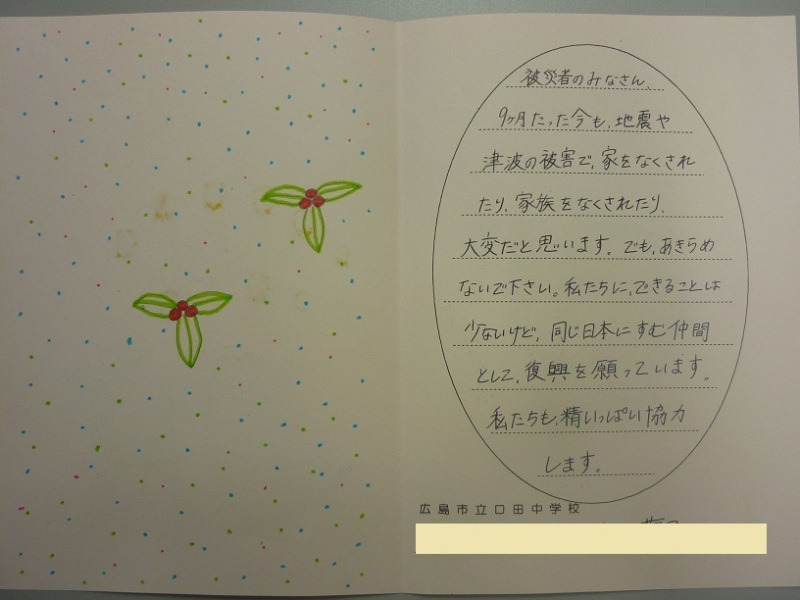 被災者のみなさん、
9ヶ月たった今も、地震や
津波の被害で、家をなくされ
たり、家族をなくされたり、
大変だと思います。でも、あきらめ
ないで下さい。私たちに、できることは
少ないけど、同じ日本にすむ仲間
として、復興を願っています。
私たちも、精いっぱい協力
します。
広島市立口田中学校